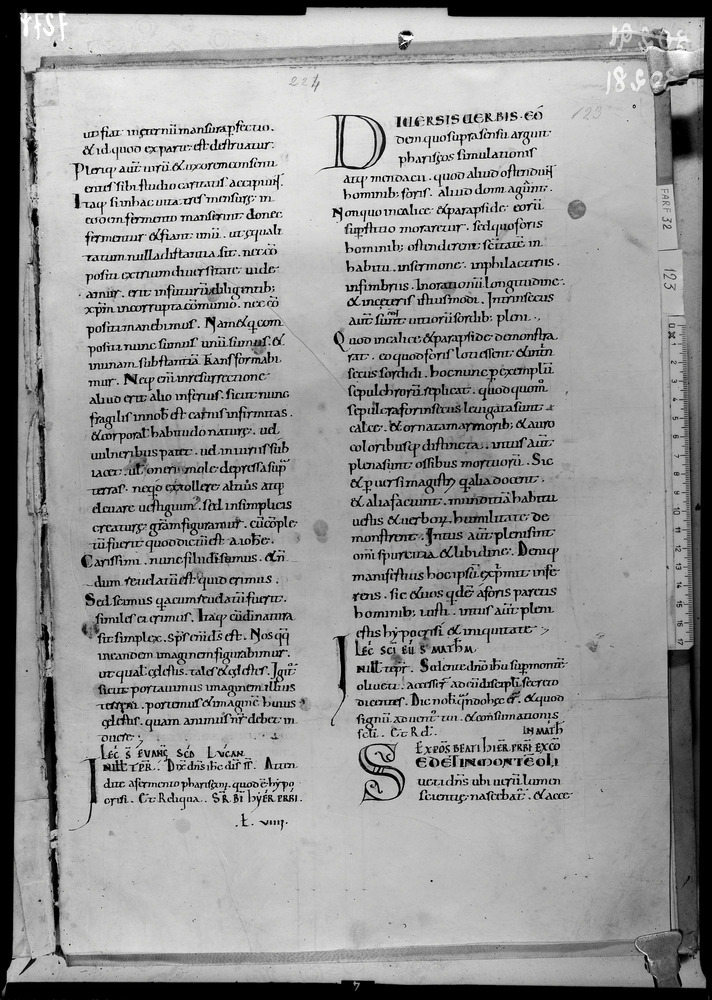 224
123
ut fiat in ceternū mansura pfectio.
& id quod ex parte est destruatur.
Pleriq; aut̄ uirū & uxorem consenti
entes sibi studio caritatis accipiunt.
Itaq; si in hac uita tres mensurę in
coo in fermento manserint donec
fermentur & fiant unū. ut ęquali
tatum nulla distantia sit. nec cō
posita ex trium diuersitate uide
amur. erit in futurū diligentib;
xp̄m incorrupta cōmunio. nec cō
positi manebimus. Nam & q com
positi nunc sumus unū sumus. &
in unam substantiā transformabi
mur. Neq; enī in resurrectione
aliud erit alio inferius. sicut nunc
fragilis in nob est carnis infirmitas.
& corporal habitudo naturę. uel
uulneribus patet. uel iniuriis sub
iacet. ut oneri mole depressa sup
terras. neq; extollere altius atq;
eleuare uestigium. sed in simplicis
creaturę grām figuramur. cū cōple
tū fuerit quod dictū est a iohe.
Carissimi. nunc filii dī sumus. & n̄
dum reuelatū est quid erimus.
Sed scimus q̄a cum reuelatū fuerit.
similes ei erimus. Itaq; cū di natura
sit simplex. sps enī ds est. Nos qq
in eandem imaginem figurabimur.
ut qual cęlestis. tales & cęlestes. Igit̄
sicut portauimus imaginem illius
terreni. portemus & imaginē huius
cęlestis. quam animus nr̄ debet in
duere.
LEC S EVANG SCD LVCAN
IN ILL TPR. Dix dns ihc dis sī. Atten
dite a fermento phariseoꝝ. quod ē hypo
crisi. Et Reliqua. SR BI HYER PRBI.
.L. VIIII.
DIUERSIS UERBIS. EO
dem quo supra sensu arguit
phariseos simulationis
atq; mendacii. quod aliud ostendunt
hominib; foris. aliud domi agunt.
Non quo in calice & parapside eorū
superstitio moraretur. sed quo foris
hominib; ostenderent scītatē in
habitu. in sermone. in philacteriis.
in fimbriis. In orationū longitudine.
& in ceteris istiusmodi. Intrinsecus
aut̄ sunt uitiorū sordib; pleni.
Quod in calice & parapside demonstra
rat. eo quod foris loti essent & intrin
secus sordidi. hoc nunc p exemplū
sepulchrorū replicat. quod quom̄
sepulcra forinsecus leuigata sunt
calce. & ornata marmorib; & auro
coloribusq; distincta. intus aut̄
plena sunt ossibus mortuorū. Sic
& puersi magistri q̄ alia docent.
& alia faciunt. munditiā habitu
uestis & uerboꝝ humilitate de
monstrent. Intus aut̄ pleni sint
omī spurcitia & libidine. Deniq;
manifestius hoc ipsū exprimit infe
rens. sic & uos q̄dē a foris paretis
hominib; iusti. intus aut̄ pleni
estis hypocrisi & iniquitate
LEC SCI EU S MATHM
IN ILL TEPR. Sedente dno ihu sup monte
oliueti. accesser ad eū discipli secreto
dicentes. Dic nob qn̄do hęc er̄. & quod
signū aduent tui. & consummationis
scli. Et Rl. IN MATH
EXPOS BEATI HIER PRBI EX CO
SEDET IN MONTE OLI
ueti dns ubi uerū lumen
scientię nascebat̄. & acce
FARF 32
123